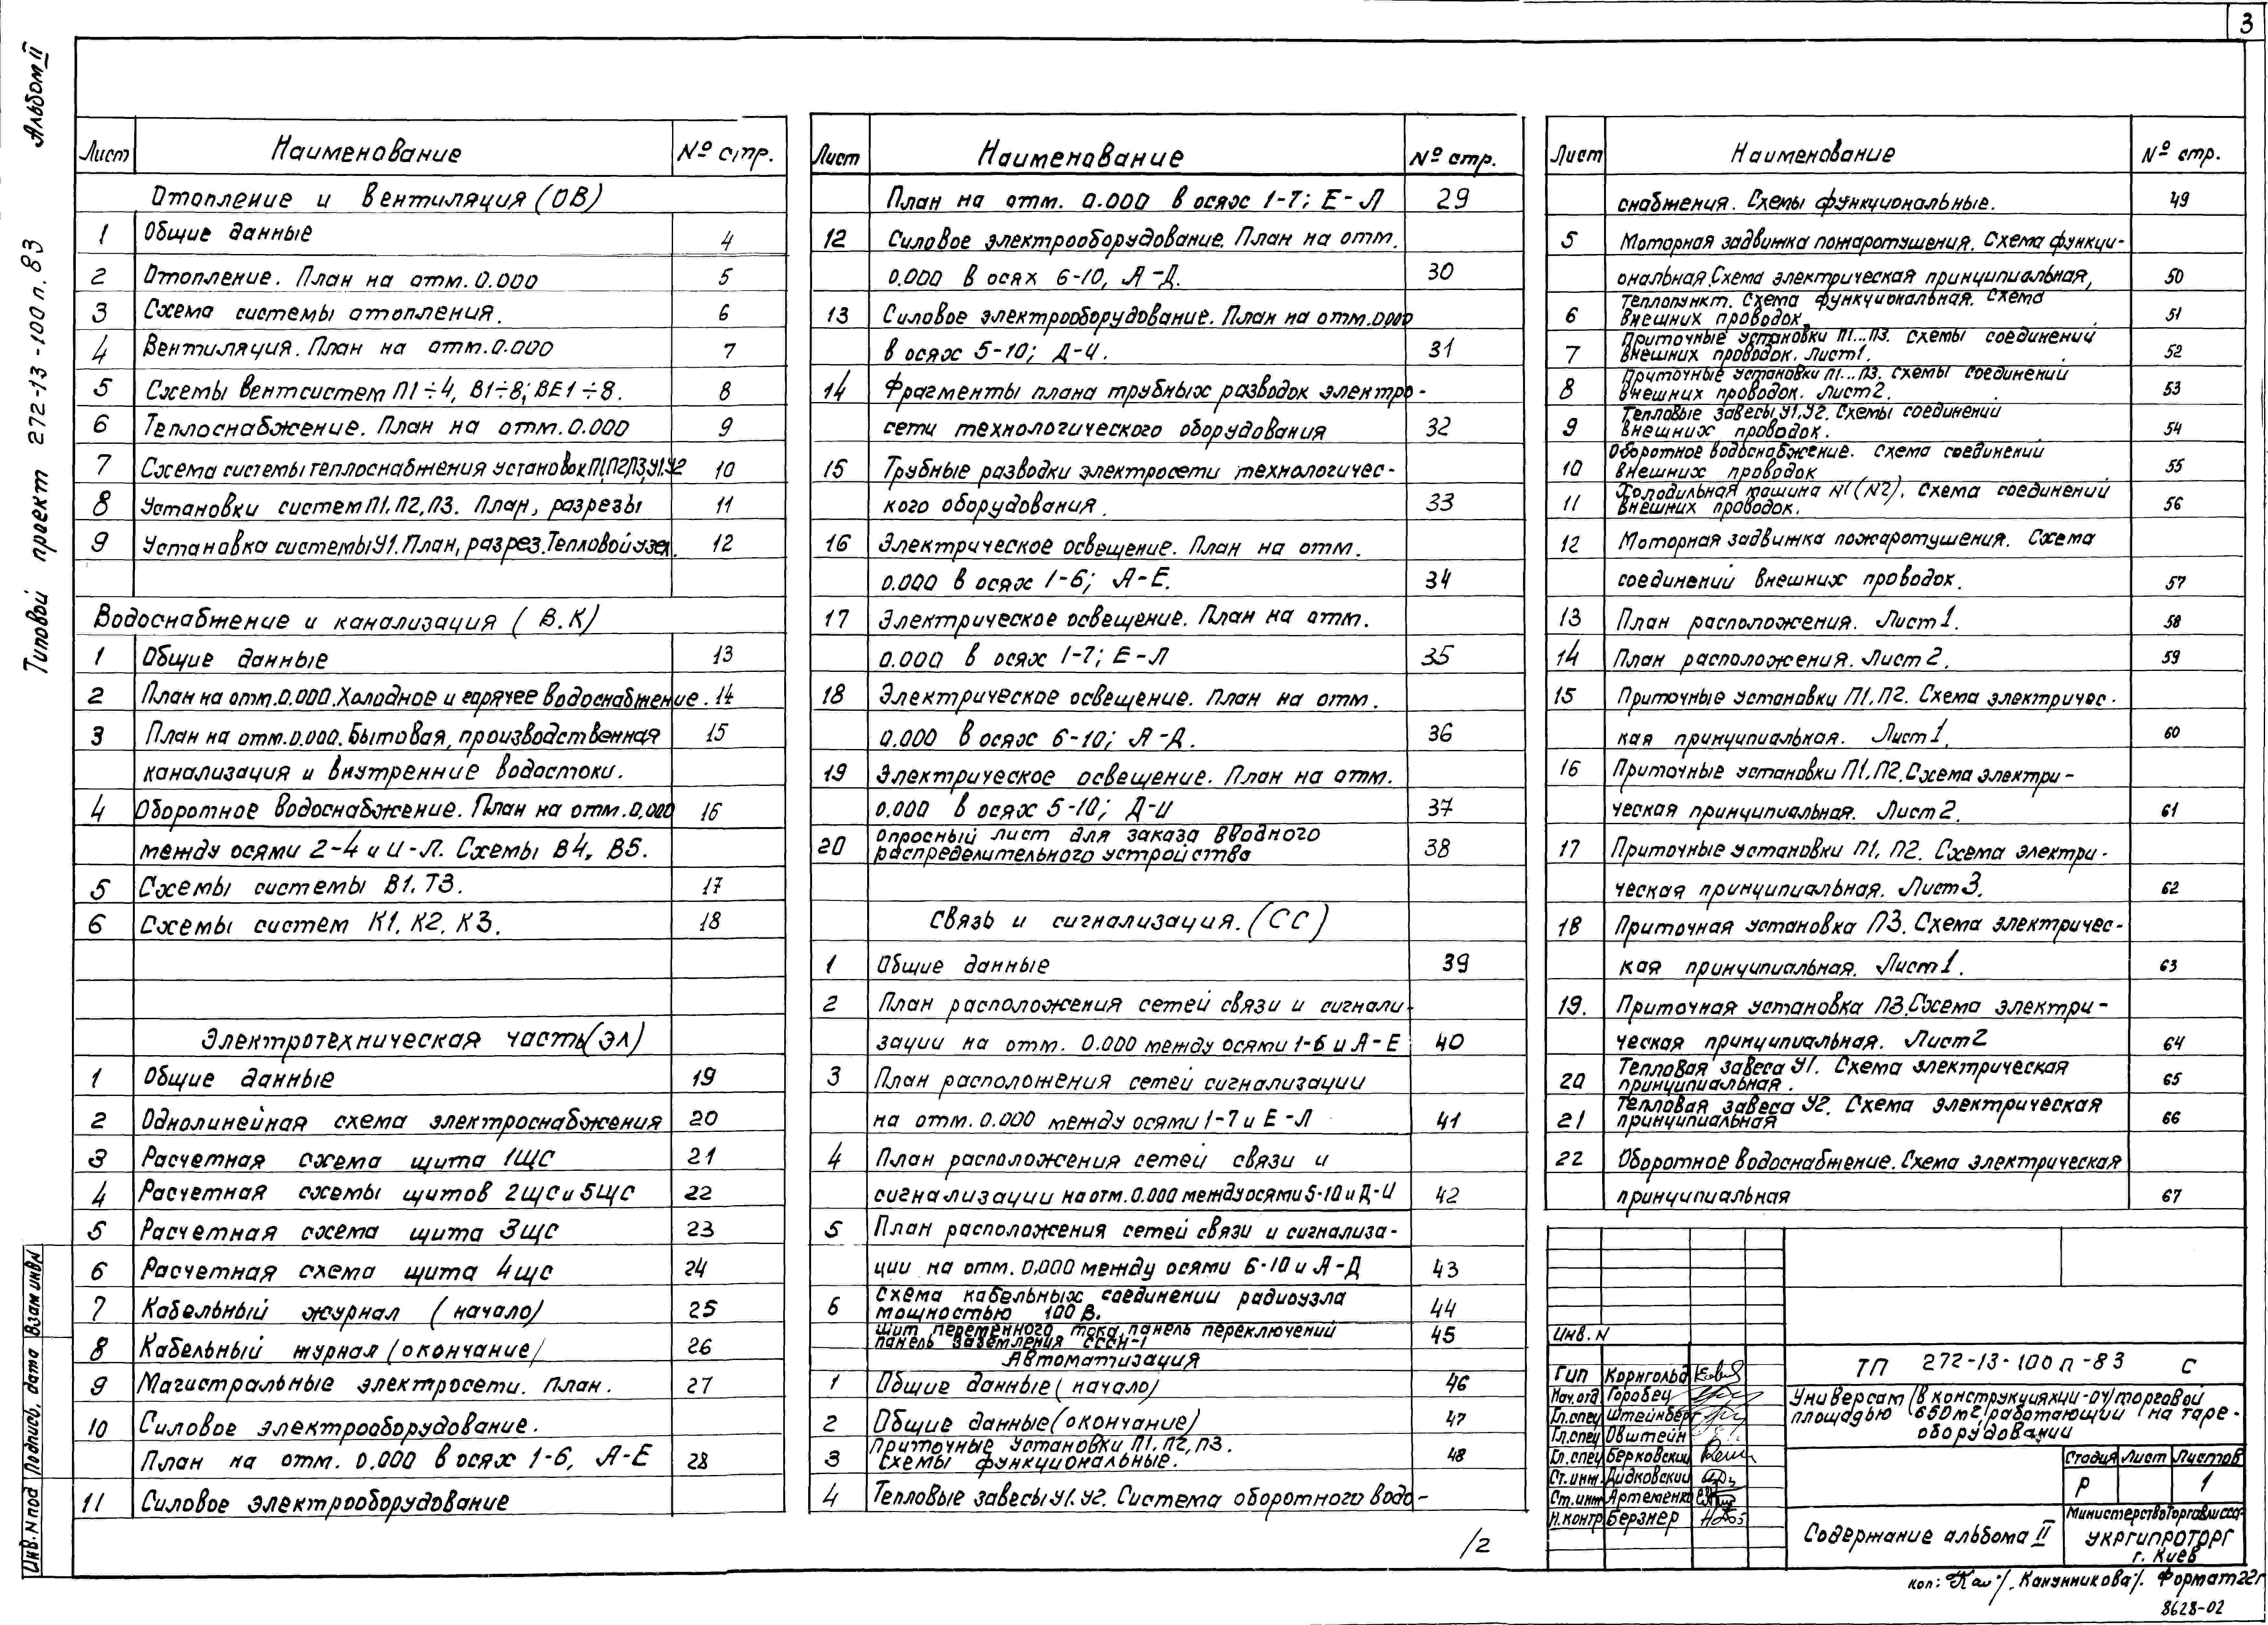 3
Альбом II
Типовой проект 272-13-100 п. 83
Лист Наименование № стр.
Отопление и вентиляция (ОВ)
1 Общие данные 4
2 Отопление. План на отм. 0.000 5
3 Схема системы отопления. 6
4 Вентиляция. План на отм. 0.000 7
5 Схемы вентсистем П1÷4, В1÷8; ВЕ1÷8. 8
6 Теплоснабжение. План на отм. 0.000 9
7 Схема системы теплоснабжения установок П1,П2,П3,У1,У2 10
8 Установки систем П1, П2, П3. План, разрезы 11
9 Установка системы У1. План, разрез. Тепловой узел. 12
Водоснабжение и канализация (В.К)
1 Общие данные 13
2 План на отм. 0.000. Холодное и горячее водоснабжение. 14
3 План на отм. 0.000. Бытовая, производственная 15
канализация и внутренние водостоки.
4 Оборотное водоснабжение. План на отм. 0.000 16
между осями 2-4 и И-Л. Схемы В4, В5.
5 Схемы системы В1, Т3. 17
6 Схемы систем К1, К2, К3. 18
Электротехническая часть (ЭЛ)
1 Общие данные 19
2 Однолинейная схема электроснабжения 20
3 Расчетная схема щита 1ЩС 21
4 Расчетная схемы щитов 2ЩС и 5ЩС 22
5 Расчетная схема щита 3ЩС 23
6 Расчетная схема щита 4ЩС 24
7 Кабельный журнал (начало) 25
8 Кабельный журнал (окончание) 26
9 Магистральные электросети. План. 27
10 Силовое электрооборудование.
План на отм. 0.000 в осях 1-6, А-Е 28
11 Силовое электрооборудование
Лист Наименование № стр.
План на отм. 0.000 в осях 1-7; Е-Л 29
12 Силовое электрооборудование. План на отм.
0.000 в осях 6-10, А-Д. 30
13 Силовое электрооборудование. План на отм. 0.000
в осях 5-10; Д-И. 31
14 Фрагменты плана трубных разводок электро-
сети технологического оборудования 32
15 Трубные разводки электросети технологичес-
кого оборудования. 33
16 Электрическое освещение. План на отм.
0.000 в осях 1-6; А-Е. 34
17 Электрическое освещение. План на отм.
0.000 в осях 1-7; Е-Л 35
18 Электрическое освещение. План на отм.
0.000 в осях 6-10; А-Д. 36
19 Электрическое освещение. План на отм.
0.000 в осях 5-10; Д-И 37
20 Опросный лист для заказа вводного
распределительного устройства 38
Связь и сигнализация. (СС)
1 Общие данные 39
2 План расположения сетей связи и сигнали-
зации на отм. 0.000 между осями 1-6 и А-Е 40
3 План расположения сетей сигнализации
на отм. 0.000 между осями 1-7 и Е-Л 41
4 План расположения сетей связи и
сигнализации на отм. 0.000 между осями 5-10 и Д-И 42
5 План расположения сетей связи и сигнализа-
ции на отм. 0.000 между осями 6-10 и А-Д 43
6 Схема кабельных соединении радиоузла
мощностью 100 В. 44
Щит переменного тока, панель переключений 45
панель заземления СССН-1
Автоматизация
1 Общие данные (начало) 46
2 Общие данные (окончание) 47
3 Приточные установки П1, П2, П3.
Схемы функциональные. 48
4 Тепловые завесы У1, У2. Система оборотного водо-
/2
Лист Наименование № стр.
снабжения. Схемы функциональные. 49
5 Моторная задвижка пожаротушения. Схема функци-
ональная. Схема электрическая принципиальная, 50
6 Теплопункт. Схема функциональная. Схема
внешних проводок 51
7 Приточные установки П1...П3. Схемы соединений
внешних проводок. Лист 1. 52
8 Приточные установки П1...П3. Схемы соединений
внешних проводок. Лист 2. 53
9 Тепловые завесы У1, У2. Схемы соединений
внешних проводок. 54
10 Оборотное водоснабжение. Схема соединений
внешних проводок 55
11 Холодильная машина N1 (N2). Схема соединений
внешних проводок. 56
12 Моторная задвижка пожаротушения. Схема
соединений внешних проводок. 57
13 План расположения. Лист 1. 58
14 План расположения. Лист 2. 59
15 Приточные установки П1, П2. Схема электричес-
кая принципиальная. Лист 1. 60
16 Приточные установки П1, П2. Схема электри-
ческая принципиальная. Лист 2. 61
17 Приточные установки П1, П2. Схема электри-
ческая принципиальная. Лист 3. 62
18 Приточная установка П3. Схема электричес-
кая принципиальная. Лист 1. 63
19. Приточная установка П3. Схема электри-
ческая принципиальная. Лист 2 64
20 Тепловая завеса У1. Схема электрическая
принципиальная. 65
21 Тепловая завеса У2. Схема электрическая
принципиальная 66
22 Оборотное водоснабжение. Схема электрическая
принципиальная 67
Инв. N
ГИП Корнгольд
Нач.отд Горобец
Гл.спец Штейнберг
Гл.спец Овштейн
Гл.спец Берковский
Ст.инж. Дидковский
Ст.инж Артеменко
Н.контр Берзнер
ТП 272-13-100 п-83 С
Универсам (в конструкциях ИИ-04) торговой
площадью 650 м2, работающий на таре-
оборудовании
Стадия Лист Листов
Р 1
Содержание альбома II
Министерство торговли СССР
УКРГИПРОТОРГ
г. Киев
коп: /Канунникова/. Формат 22г
8628-02
Инв.N под Подпись, дата Взам инв N